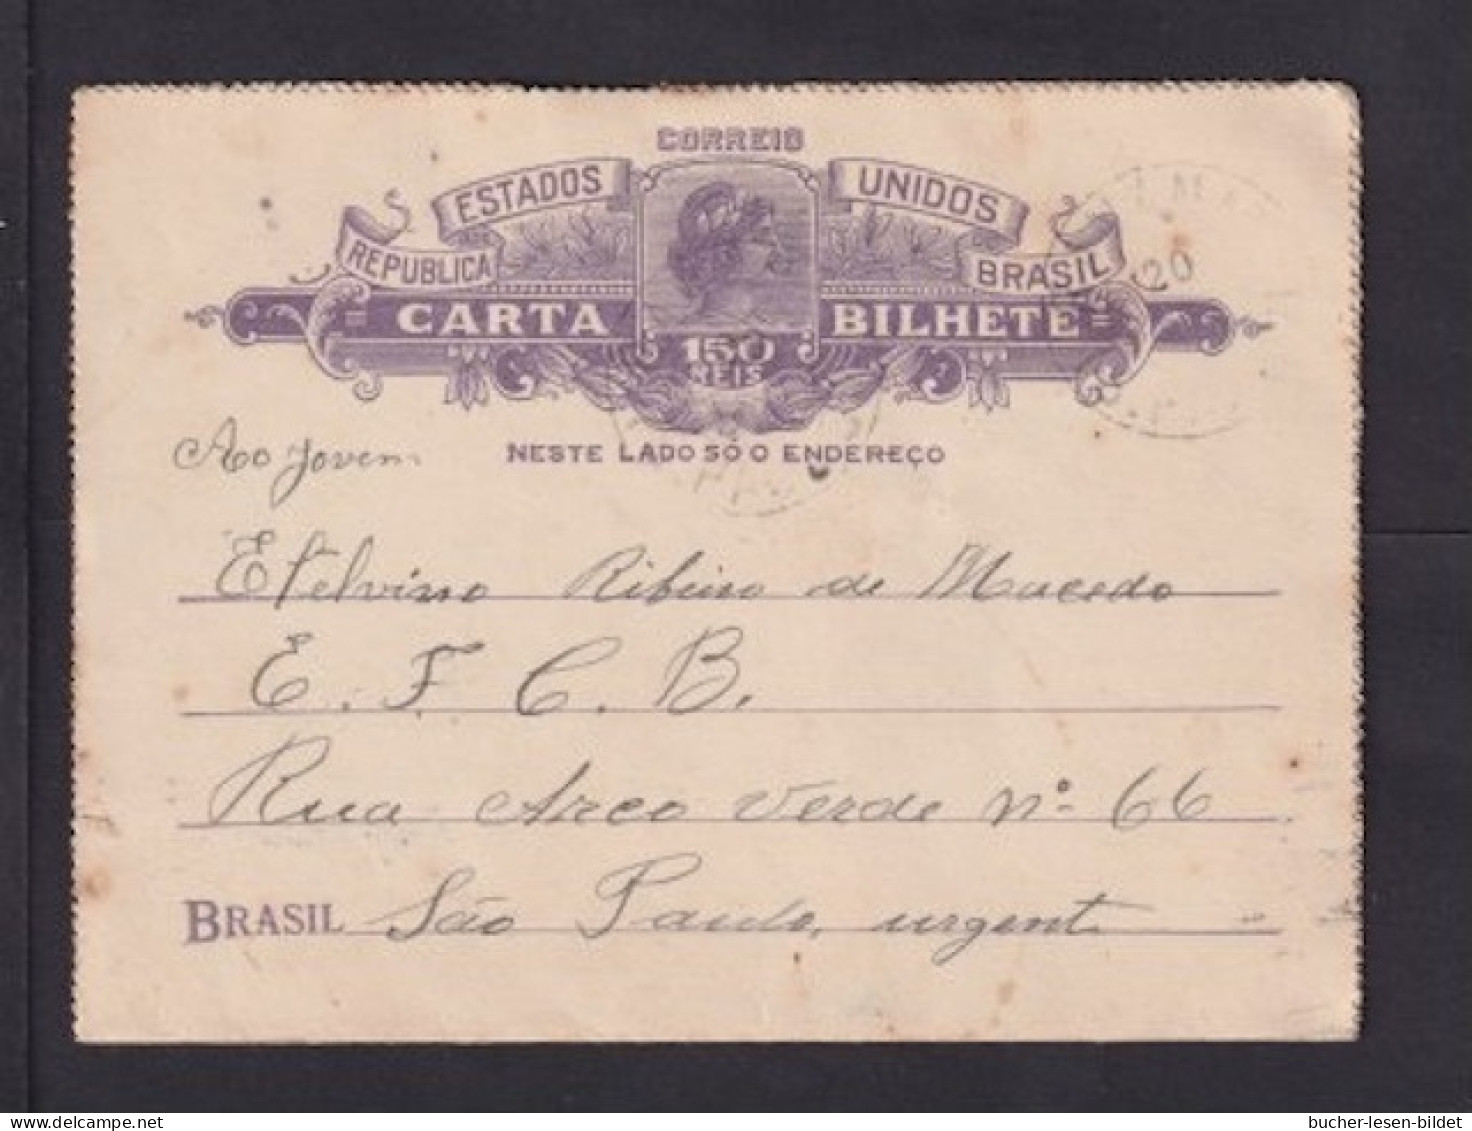 CORREIO
ESTADOS UNIDOS
REPUBLICA BRASIL
CARTA BILHETE
150
REIS
NESTE LADO SÓ O ENDEREÇO
Ao Jovem
Etelvino Ribeiro de Macedo
E. F. C. B.
Rua Arco Verde nº 66
BRASIL São Paulo, urgente
20
bucher-lesen-bildet